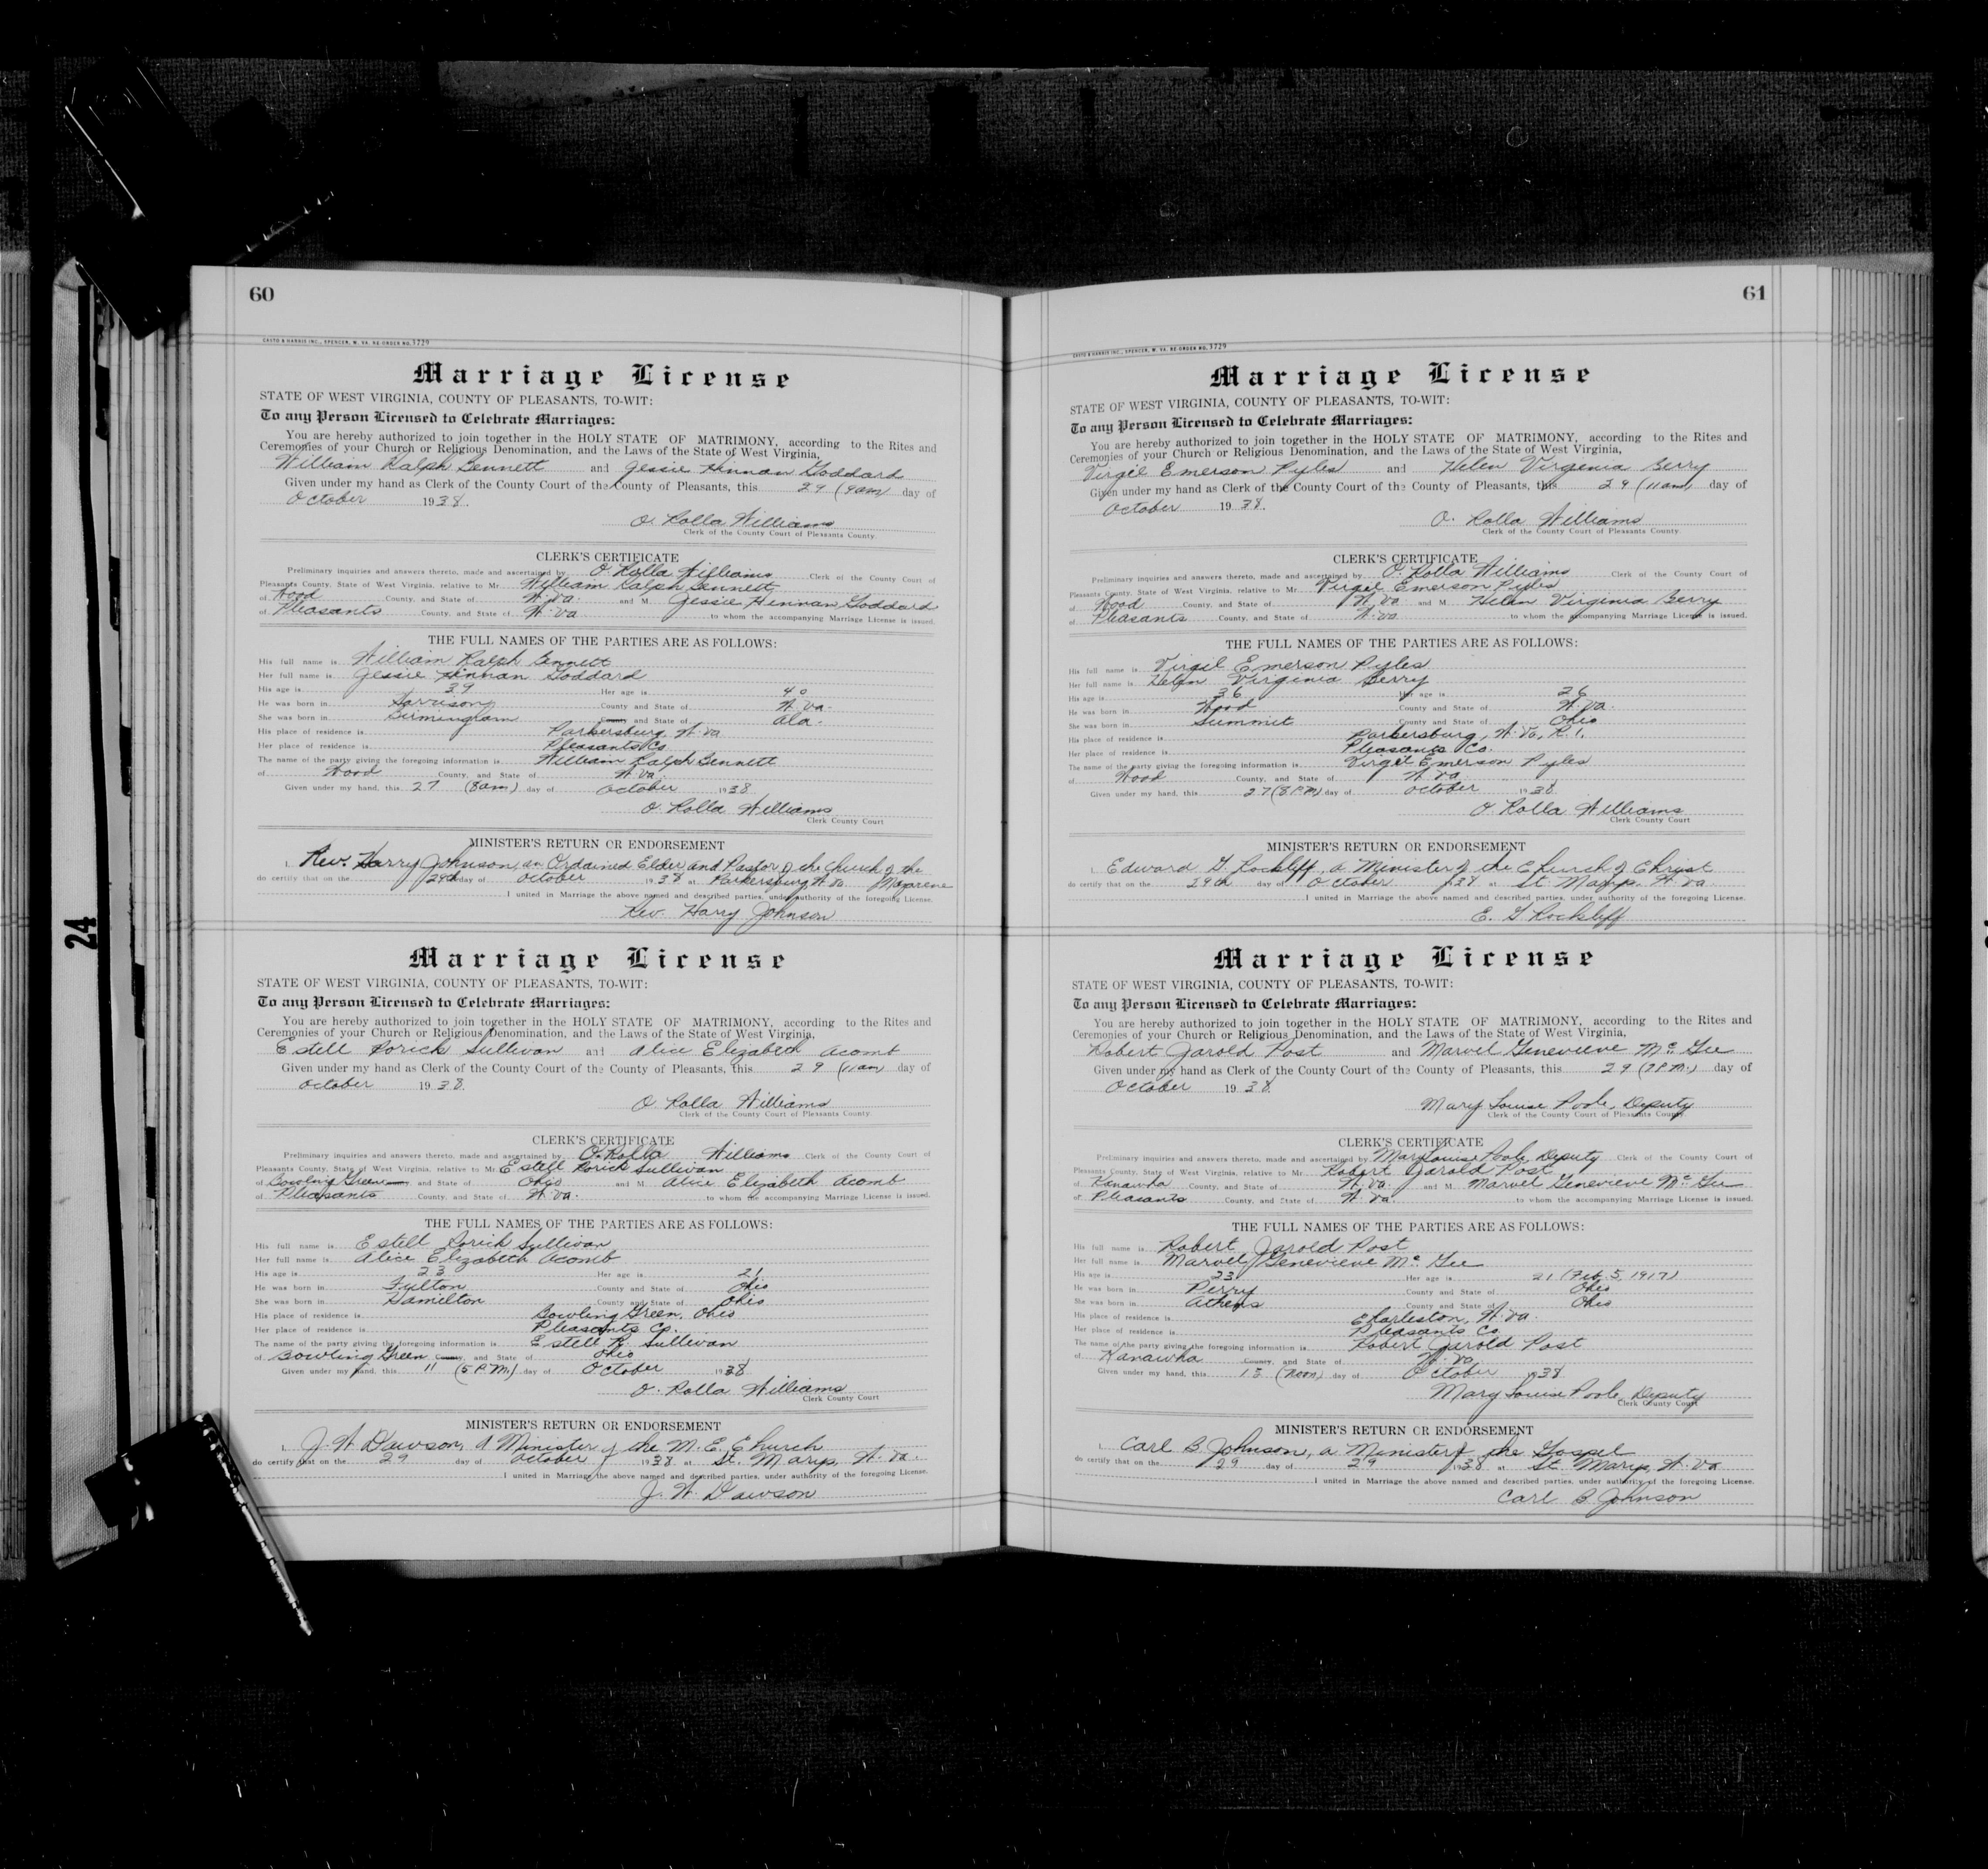 60
CASTO & HARRIS INC., SPENCER, W. VA. RE-ORDER NO. 3729
Marriage License
STATE OF WEST VIRGINIA, COUNTY OF PLEASANTS, TO-WIT:
To any Person Licensed to Celebrate Marriages:
You are hereby authorized to join together in the HOLY STATE OF MATRIMONY, according to the Rites and
Ceremonies of your Church or Religious Denomination, and the Laws of the State of West Virginia,
William Ralph Bennett and Jessie Hinnan Goddard
Given under my hand as Clerk of the County Court of the County of Pleasants, this 29 (9am) day of
October 1938.
O. Rolla Williams
Clerk of the County Court of Pleasants County.
CLERK'S CERTIFICATE
Preliminary inquiries and answers thereto, made and ascertained by O. Rolla Williams Clerk of the County Court of
Pleasants County, State of West Virginia, relative to Mr. William Ralph Bennett
of Wood County, and State of W. Va. and M Jessie Hinnan Goddard
of Pleasants County, and State of W. Va. to whom the accompanying Marriage License is issued.
THE FULL NAMES OF THE PARTIES ARE AS FOLLOWS:
His full name is William Ralph Bennett
Her full name is Jessie Hinnan Goddard
His age is 39 Her age is 40
He was born in Harrison County and State of W. Va.
She was born in Birmingham County and State of Ala.
His place of residence is Parkersburg, W. Va.
Her place of residence is Pleasants Co
The name of the party giving the foregoing information is William Ralph Bennett
of Wood County, and State of W. Va.
Given under my hand, this 27 (8am) day of October 1938
O. Rolla Williams
Clerk County Court
MINISTER'S RETURN OR ENDORSEMENT
I, Rev. Harry Johnson, an Ordained Elder and Pastor of the Church of the
do certify that on the 29th day of October 1938 at Parkersburg W. Va. Nazarene
I united in Marriage the above named and described parties, under authority of the foregoing License.
Rev. Harry Johnson
Marriage License
STATE OF WEST VIRGINIA, COUNTY OF PLEASANTS, TO-WIT:
To any Person Licensed to Celebrate Marriages:
You are hereby authorized to join together in the HOLY STATE OF MATRIMONY, according to the Rites and
Ceremonies of your Church or Religious Denomination, and the Laws of the State of West Virginia,
Estell Rorick Sullivan and Alice Elizabeth Acomb
Given under my hand as Clerk of the County Court of the County of Pleasants, this 29 (11am) day of
October 1938.
O. Rolla Williams
Clerk of the County Court of Pleasants County.
CLERK'S CERTIFICATE
Preliminary inquiries and answers thereto, made and ascertained by O. Rolla Williams Clerk of the County Court of
Pleasants County, State of West Virginia, relative to Mr. Estell Rorick Sullivan
of Bowling Green and State of Ohio and M Alice Elizabeth Acomb
of Pleasants County, and State of W. Va. to whom the accompanying Marriage License is issued.
THE FULL NAMES OF THE PARTIES ARE AS FOLLOWS:
His full name is Estell Rorick Sullivan
Her full name is Alice Elizabeth Acomb
His age is 23 Her age is 21
He was born in Fulton County and State of Ohio
She was born in Hamilton County and State of Ohio
His place of residence is Bowling Green, Ohio
Her place of residence is Pleasants Co.
The name of the party giving the foregoing information is Estell R. Sullivan
of Bowling Green County, and State of Ohio
Given under my hand, this 11 (5 P.M.) day of October 1938
O. Rolla Williams
Clerk County Court
MINISTER'S RETURN OR ENDORSEMENT
I, J. W. Dawson, A Minister of the M. E. Church
do certify that on the 29 day of October 1938 at St. Marys, W. Va.
I united in Marriage the above named and described parties, under authority of the foregoing License.
J. W. Dawson
61
CASTO & HARRIS INC., SPENCER, W. VA. RE-ORDER NO. 3729
Marriage License
STATE OF WEST VIRGINIA, COUNTY OF PLEASANTS, TO-WIT:
To any Person Licensed to Celebrate Marriages:
You are hereby authorized to join together in the HOLY STATE OF MATRIMONY, according to the Rites and
Ceremonies of your Church or Religious Denomination, and the Laws of the State of West Virginia,
Virgil Emerson Pyles and Helen Virginia Berry
Given under my hand as Clerk of the County Court of the County of Pleasants, this 29 (11am) day of
October 1938.
O. Rolla Williams
Clerk of the County Court of Pleasants County.
CLERK'S CERTIFICATE
Preliminary inquiries and answers thereto, made and ascertained by O. Rolla Williams Clerk of the County Court of
Pleasants County, State of West Virginia, relative to Mr. Virgil Emerson Pyles
of Wood County, and State of W. Va. and M Helen Virginia Berry
of Pleasants County, and State of W. Va. to whom the accompanying Marriage License is issued.
THE FULL NAMES OF THE PARTIES ARE AS FOLLOWS:
His full name is Virgil Emerson Pyles
Her full name is Helen Virginia Berry
His age is 36 Her age is 26
He was born in Wood County and State of W. Va.
She was born in Summit County and State of Ohio
His place of residence is Parkersburg, W. Va., R. 1.
Her place of residence is Pleasants Co.
The name of the party giving the foregoing information is Virgil Emerson Pyles
of Wood County, and State of W. Va
Given under my hand, this 27 (8 P.M) day of October 1938
O. Rolla Williams
Clerk County Court
MINISTER'S RETURN OR ENDORSEMENT
I, Edward G. Rockliff, a Minister of the Church of Christ
do certify that on the 29th day of October 1938 at St. Marys, W. Va.
I united in Marriage the above named and described parties, under authority of the foregoing License.
E. G Rockliff
Marriage License
STATE OF WEST VIRGINIA, COUNTY OF PLEASANTS, TO-WIT:
To any Person Licensed to Celebrate Marriages:
You are hereby authorized to join together in the HOLY STATE OF MATRIMONY, according to the Rites and
Ceremonies of your Church or Religious Denomination, and the Laws of the State of West Virginia,
Robert Jarold Post and Marvel Genevieve McGee
Given under my hand as Clerk of the County Court of the County of Pleasants, this 29 (7 P.M.) day of
October 1938.
Mary Louise Poole, Deputy
Clerk of the County Court of Pleasants County.
CLERK'S CERTIFICATE
Preliminary inquiries and answers thereto, made and ascertained by Mary Louise Poole, Deputy Clerk of the County Court of
Pleasants County, State of West Virginia, relative to Mr. Robert Jarold Post
of Kanawha County, and State of W. Va. and M Marvel Genevieve McGee
of Pleasants County, and State of W. Va. to whom the accompanying Marriage License is issued.
THE FULL NAMES OF THE PARTIES ARE AS FOLLOWS:
His full name is Robert Jarold Post
Her full name is Marvel Genevieve McGee
His age is 23 Her age is 21 (Feb. 5, 1917)
He was born in Perry County and State of Ohio
She was born in Athens County and State of Ohio
His place of residence is Charleston, W. Va.
Her place of residence is Pleasants Co.
The name of the party giving the foregoing information is Robert Jarold Post
of Kanawha County, and State of W. Va
Given under my hand, this 15 (Noon) day of October 1938
Mary Louise Poole, Deputy
Clerk County Court
MINISTER'S RETURN OR ENDORSEMENT
I, Carl B. Johnson, a Minister of the Gospel
do certify that on the 29 day of 29 1938 at St. Marys, W. Va
I united in Marriage the above named and described parties, under authority of the foregoing License.
Carl B. Johnson
24